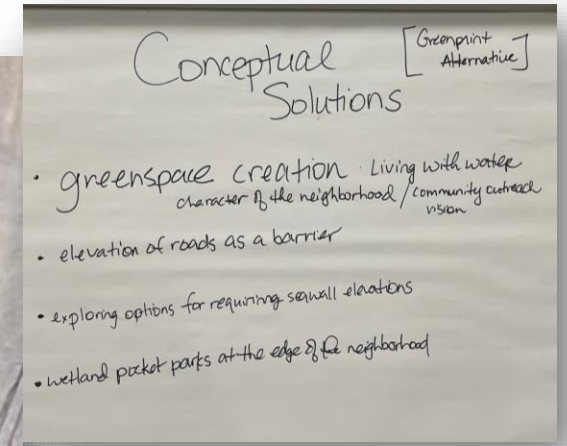 Conceptual
Solutions
[Greenprint
Alternative]
• greenspace creation · Living with water
character of the neighborhood / community outreach
vision
• elevation of roads as a barrier
• exploring options for requiring seawall elevations
• wetland pocket parks at the edge of neighborhood